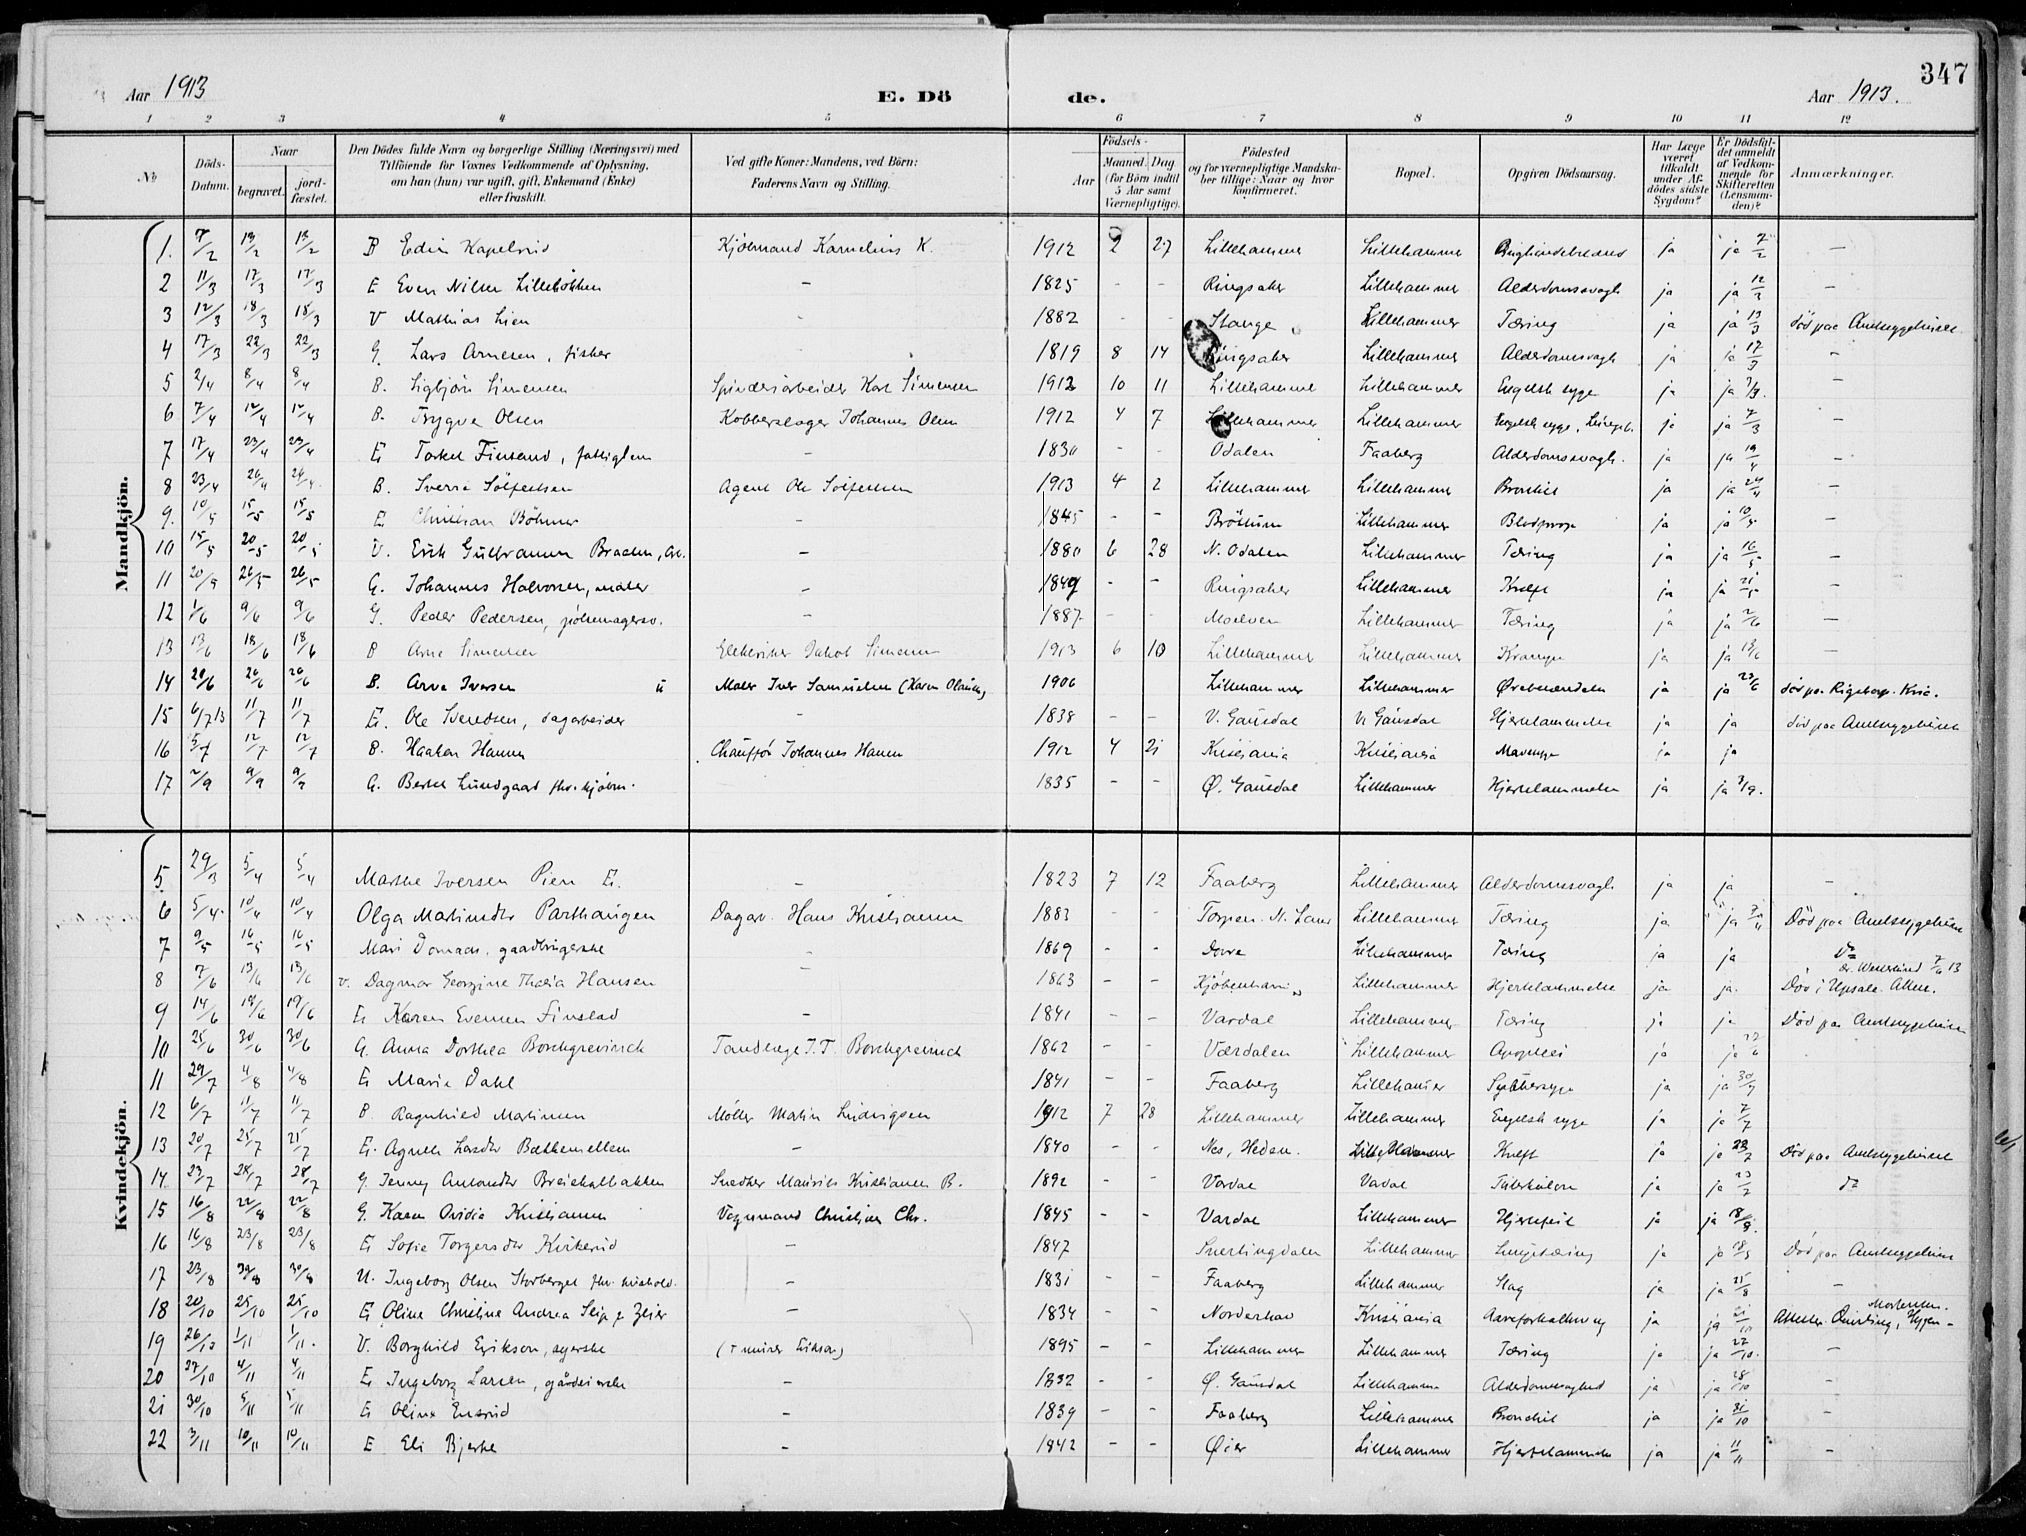 347
Aar 1913
E. Dö
de.
Aar 1913.
1 2 3 4 5 6 7 8 9 10 11 12
No
Döds-Datum.
Naar
begravet.
jord-fæstet.
Den Dödes fulde Navn og borgerlige Stilling (Næringsvei) med
Tilföiende for Voxnes Vedkommende af Oplysning,
om han (hun) var ugift, gift, Enkemand (Enke)
eller fraskilt.
Ved gifte Koner: Mandens, ved Börn:
Faderens Navn og Stilling.
Födsels-
Aar
Maaned Dag
(for Börn indtil
5 Aar samt
Værnepligtige).
Födested
og for værnepligtige Mandska-
ber tillige: Naar og hvor
konfirmeret.
Bopæl.
Opgiven Dödsaarsag.
Har Læge
været
tilkaldt
under Af-
dödes sidste
Sygdom?
Er Dödsfal-
det anmeldt
af Vedkom-
mende for
Skifteretten
(Lensman-
den)?
Anmærkninger.
Mandkjön.
1. 7/2 13/2 13/2 B Edin Kapelrud Kjöbmand Kornelius K. 1912 2 27 Lillehammer Lillehammer ja ja 7/2 —
2 11/3 17/3 17/3 E Even Nilsen Lillebökken — 1825 - - Ringsaker Lillehammer Alderdomssvagh ja ja 12/3 —
3 12/3 18/3 18/3 V Mathias Lien 1882 - - Stange Lillehammer Tæring ja ja 13/3 död paa Amtssygehuset
4 17/3 22/3 22/3 G. Lars Arnesen, fisker 1819 8 14 Ringsaker Lillehammer Alderdomsvagh ja ja 17/3 —
5 2/4 8/4 8/4 B. Sigbjörn Simensen Spinderiarbeider Karl Simensen 1912 10 11 Lillehammer Lillehammer Engelsk syge ja ja —
6 7/4 12/4 12/4 B. Trygve Olsen Kobberslager Johannes Olsen 1912 4 7 Lillehammer Lillehammer Engelsk syge, ja ja 7/3 —
7 17/4 23/4 23/4 E. Torkel Finsand, fattiglem — 1830 - - Odalen Faaberg Alderdomssvagh. ja ja 19/4 —
8 23/4 26/4 26/4 B. Sverre Solfestsen Agent Ole Solfestsen 1913 4 2 Lillehammer Lillehammer Bronkit ja ja 24/4 —
9. 10/5 15/5 15/5 E. Christian Böhmer — 1845 - - Bröttum Lillehammer Blodprop ja ja 10/5 —
10 15/5 20/5 20/5 U. Erik Gulbransen Braaten, arb. — 1880 6 28 N. Odalen Lillehammer Tæring ja ja 16/5 —
11 20/5 26/5 26/5 G. Johannes Halvorsen, maler — 1849 - - Ringsaker Lillehammer Kræft ja ja 21/5 —
12 1/6 9/6 9/6 G. Peder Pedersen, — 1887 - - Moelven Lillehammer Tæring ja ja 2/6 —
13 13/6 18/6 18/6 B Arne Simensen Elektriker Jakob Simensen 1913 6 10 Lillehammer Lillehammer Krampe ja ja 13/6 —
14 20/6 26/6 26/6 B. Arve Iversen Maler Iver Samuelsen 1906 Lillehammer Lillehammer ja ja 23/6 död paa Rigshosp. Kria.
15 6/7 13 11/7 11/7 E. Ole Svendsen, dagarbeider — 1838 - - V. Gausdal V. Gausdal Hjertelammelse ja ja död paa Amtssygehuset
16 5/7 12/7 12/7 B. Haakon Hansen Chauffør Johannes Hansen 1912 4 21 Kristiania Kristiania Mavesyge ja ja
17 2/9 9/9 9/9 G. Bertel Lundgaard fhv. kjöbm. 1835 - - Ø. Gausdal Lillehammer Hjertelammelse ja ja 3/9.
Kvindekjön.
5 29/3 5/4 5/4 Marthe Iversen Pien E. — 1823 7 12 Faaberg Lillehammer Alderdomssvagh ja ja —
6 5/4 10/4 10/4 Olga Matinsdtr Parthaugen Dagarb. Hans Kristiansen 1883 - - Torpen. N. Land Lillehammer Tæring ja ja Död paa Amtssygehuset
7 9/5 16/5 16/5 Mari Domaas. gaardbrugerske — 1869 - - Dovre Lillehammer Tæring ja ja Do
8 7/6 13/6 13/6 v. Dagmar Georgine Thalia Hansen — 1863 Kjöbenhavn Lillehammer Hjertelammelse ja ja Död i Upsala. Attest. dr. Westerlund 7/6 13
9 14/6 19/6 19/6 E. Karen Evensen Finstad — 1841 - - Vardal Lillehammer Tæring ja ja Död paa Amtssygehuset
10 25/6 30/6 30/6 G. Anna Dorthea Borchgrevinck Tandlæge J. T. Borchgrevinck 1862 - - Værdalen Lillehammer Apoplexi ja ja
11 29/7 4/8 4/8 E. Marie Dahl 1841 - - Faaberg Lillehamer ja ja 30/7
12 6/7 11/7 11/7 B. Ragnhild Matinsen Möller Matin Ludvigsen 1912 7 28 Lillehammer Lillehammer Engelsk syge ja ja 7/7
13 20/7 25/7 25/7 E. Agnete Larsdtr Bakkemellem — 1840 - - Nes, Hedm. Lillehammer Kræft ja ja 22/7 Död paa Amtssygehuset
14 23/7 28/7 28/7 G. Jenny Antonsdtr Breiskalbakken Snedker Maurits Kristiansen B. 1892 - - Vardal Vardal Tuberkulose ja ja 23/7 do
15 16/8 22/8 22/8 G. Karen Ovidia Kristiansen Vognmand Christian Chr. 1845 - - Vardal Lillehammer Hjertefeil ja ja 18/8.
16 16/8 23/8 23/8 E. Sofie Torgersdtr Kirkerud — 1847 Snertingdalen Lillehammer Lungetæring ja ja 18/8 Död paa Amtssygehuset
17 23/8 30/8 30/8 U. Ingeborg Olsen Storberget — 1831 - - Faaberg Lillehammer Slag ja ja 25/8 —
18 20/10 25/10 25/10 E. Oline Christine Andrea Seip f. Zeier — 1834 Norderhov Kristiania Aareforkalkning ja ja 21/10
19 26/10 1/11 1/11 V. Borghild Erikson, syerske 1895 - - Lillehammer Lillehammer Tæring ja ja 27/10. —
20 27/10 4/11 4/11 E. Ingeborg Larsen, — 1832 - - Ø. Gausdal Lillehammer Alderdomssvaghed ja ja 28/10 —
21 30/10 5/11 5/11 E. Oline Ensrud — 1839 - - Faaberg Lillehammer Bronchit ja ja 31/10 —
22 3/11 10/11 10/11 E Eli Bjerke — 1842 - - Øier Lillehammer Hjertelammelse ja ja 11/11 —